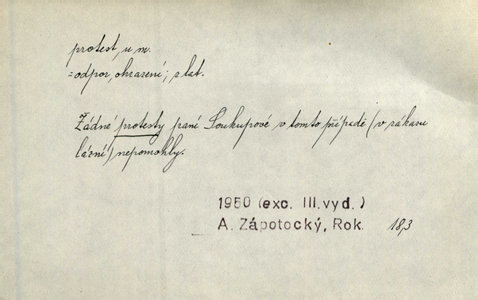 protest, u m.
= odpor, ohrazení; z lat.
Žádné protesty paní Soukupové v tomto případě (v zákazu
lázní) nepomohly.
1950 (exc. III. vyd.)
A. Zápotocký, Rok. 183